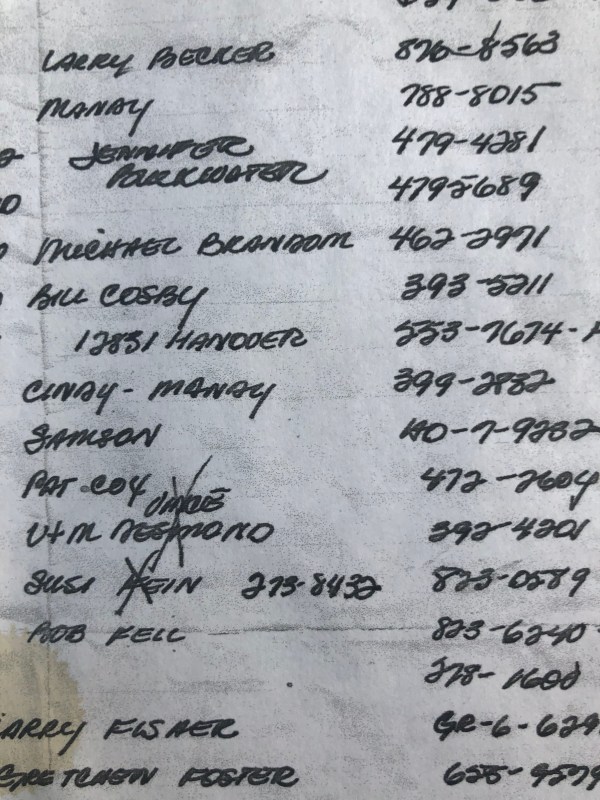 LARRY BECKER 876-8563
MANDY 788-8015
JENNIFER 479-4281
PARKWATER 479-2689
MICHAEL BRANDOM 462-2971
BILL COSBY 393-5211
12831 HANOVER 553-7674-
CINDY - MANDY 399-2882
SAMSON HO-7-9232
PAT COY 472-2604
VINCE
V+M DESMOND 392-4201
SUSI KEIN 273-8432 823-0589
BOB KELL 823-6240-
278-1600
LARRY FISHER GR-6-629
GRETCHEN FOSTER 655-9579